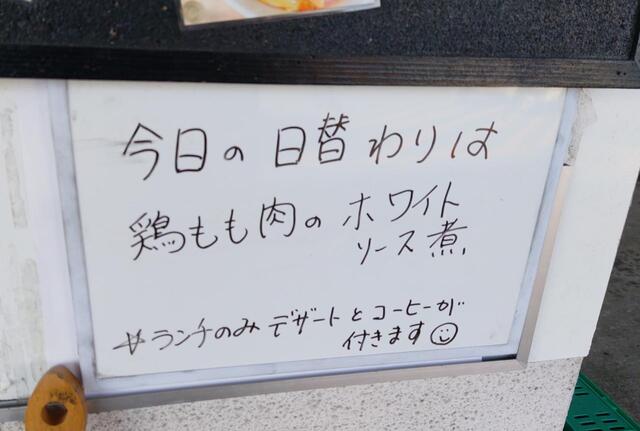 今日の日替わりは
鶏もも肉のホワイト
ソース煮
#ランチのみデザートとコーヒーが
付きます☺